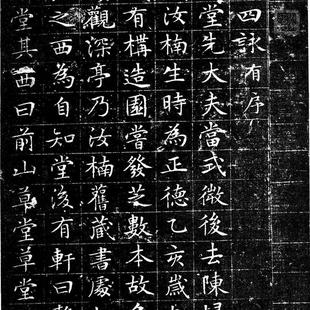 四詠有序
堂先大夫當式微後去陳
汝楠生時為正德乙亥歲
有構造園嘗發芝數本故
觀深亭乃汝楠舊藏書處
之西為自知堂後有軒曰
堂其西曰前山草堂草堂